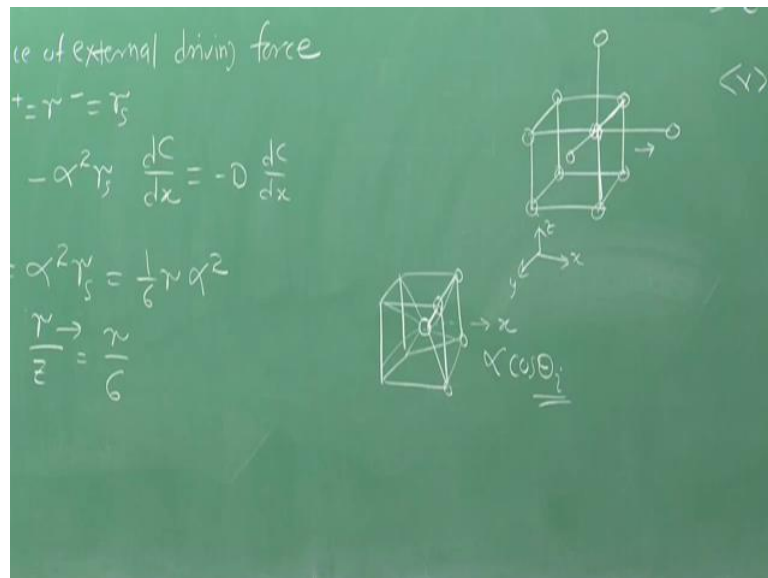 ce of external driving force
+ = r⁻ = r_s
- α² r_s dC/dx = -D dc/dx
= α² r_s = 1/6 r α²
r/z → = r/6
<v>
z
x
y
→ x
α cosθ_i